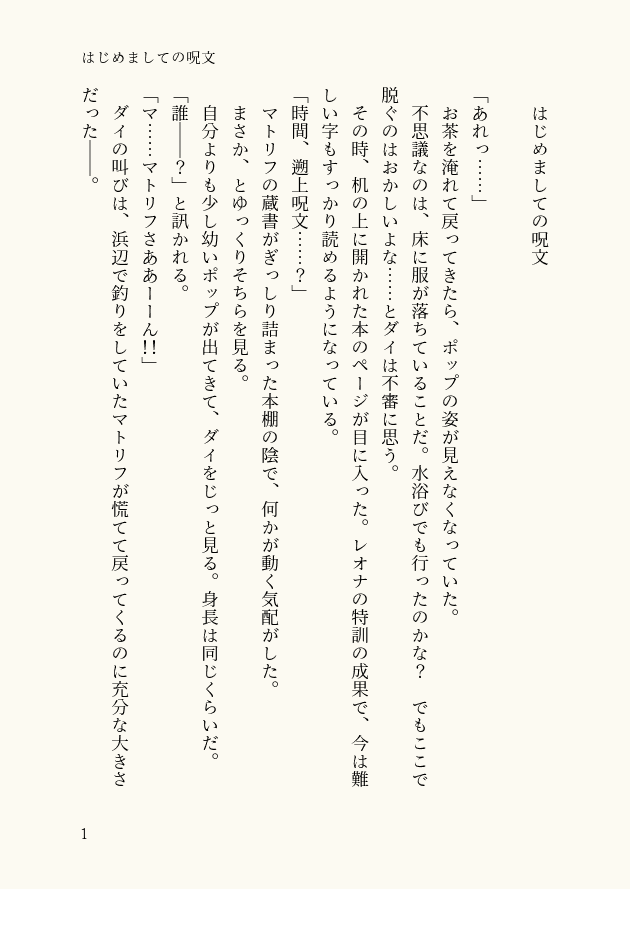 はじめましての呪文
はじめましての呪文
「あれっ……」
お茶を淹れて戻ってきたら、ポップの姿が見えなくなっていた。
不思議なのは、床に服が落ちていることだ。水浴びでも行ったのかな？　でもここで
脱ぐのはおかしいよな……とダイは不審に思う。
その時、机の上に開かれた本のページが目に入った。レオナの特訓の成果で、今は難
しい字もすっかり読めるようになっている。
「時間、遡上呪文……？」
マトリフの蔵書がぎっしり詰まった本棚の陰で、何かが動く気配がした。
まさか、とゆっくりそちらを見る。
自分よりも少し幼いポップが出てきて、ダイをじっと見る。身長は同じくらいだ。
「誰――？」と訊かれる。
「マ……マトリフさああーーん!!」
ダイの叫びは、浜辺で釣りをしていたマトリフが慌てて戻ってくるのに充分な大きさ
だった――。
1